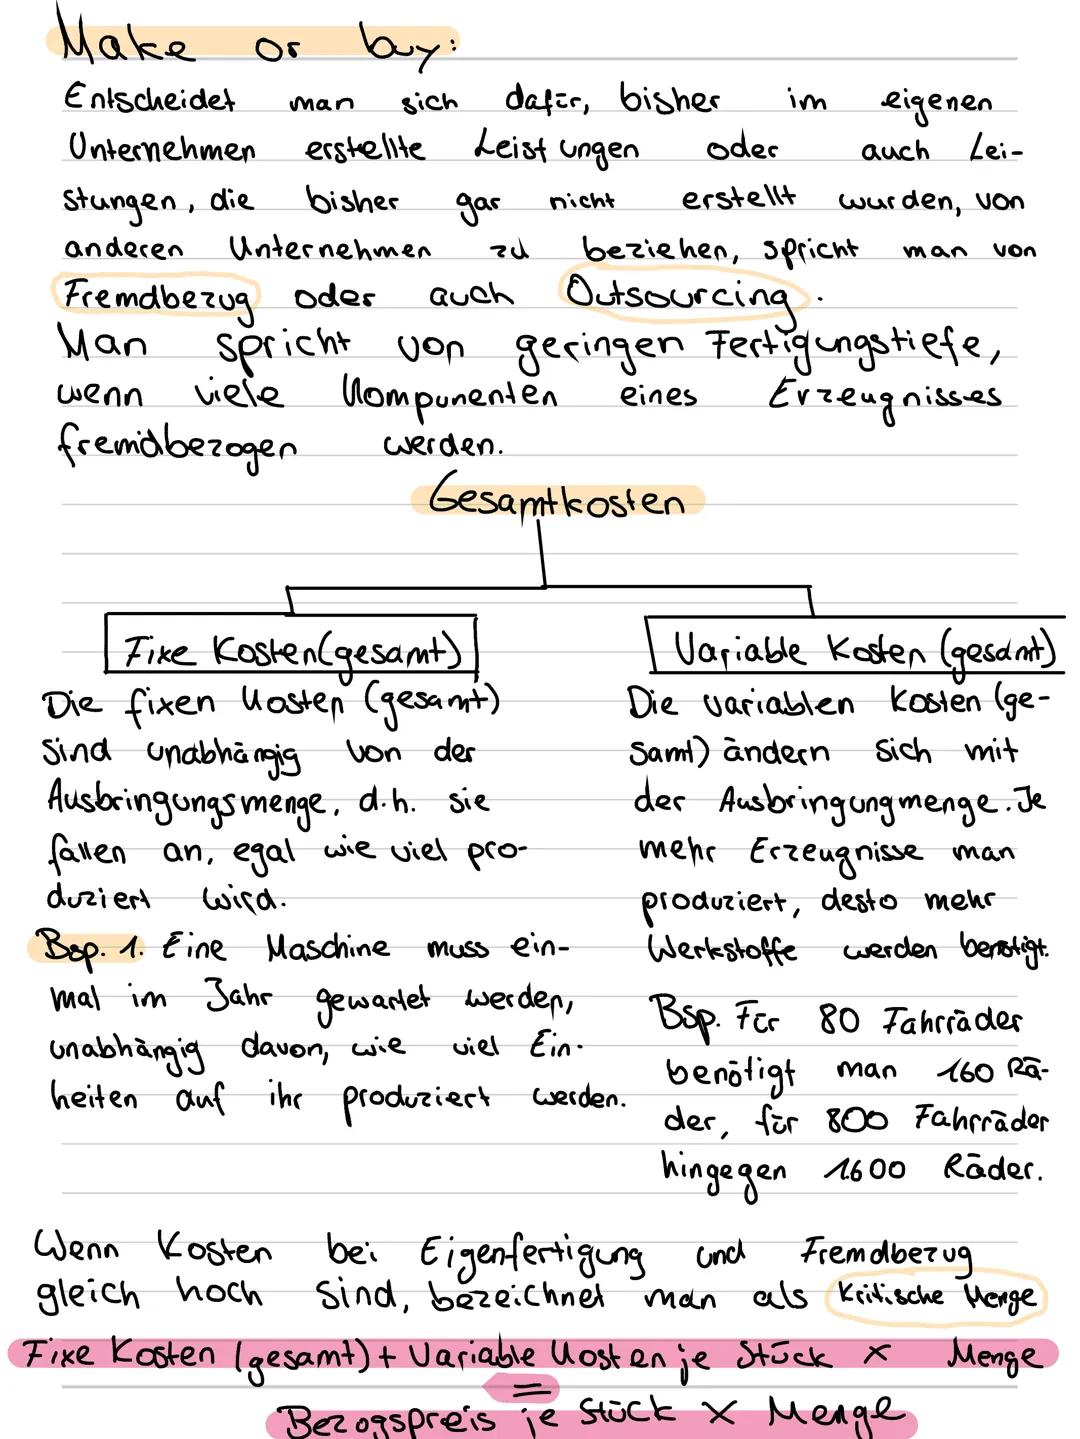 Make or buy:
Entscheidet man sich dafür, bisher im eigenen
Unternehmen erstellte Leistungen oder auch Lei-
stungen, die bisher gar nicht erstellt wurden, von
anderen Unternehmen zu beziehen, spricht man von
Fremdbezug oder auch Outsourcing.
Man spricht von geringen Fertigungstiefe,
wenn viele Komponenten eines Erzeugnisses
fremdbezogen werden.
Gesamtkosten
Fixe Kosten(gesamt)
Die fixen Kosten (gesamt)
sind unabhängig von der
Ausbringungsmenge, d.h. sie
fallen an, egal wie viel pro-
duziert wird.
Bsp. 1. Eine Maschine muss ein-
mal im Jahr gewartet werden,
unabhängig davon, wie viel Ein-
heiten auf ihr produziert werden.
Variable Kosten (gesamt)
Die variablen Kosten (ge-
samt) ändern sich mit
der Ausbringungmenge. Je
mehr Erzeugnisse man
produziert, desto mehr
Werkstoffe werden benötigt.
Bsp. Für 80 Fahrräder
benötigt man 160 Rä-
der, für 800 Fahrräder
hingegen 1600 Räder.
Wenn Kosten bei Eigenfertigung und Fremdbezug
gleich hoch Sind, bezeichnet man als Kritische Menge
Fixe Kosten (gesamt) + Variable Kosten je Stück x Menge
=
Bezogspreis je Stück x Menge